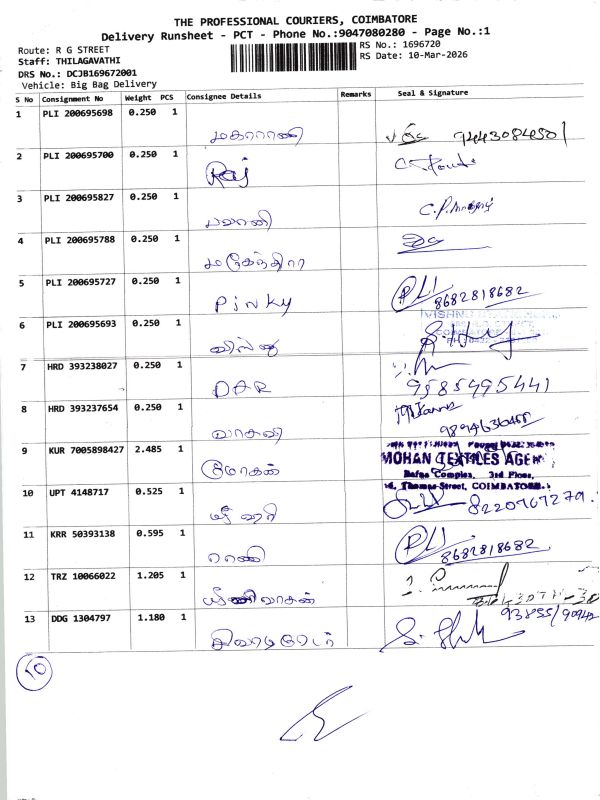 THE PROFESSIONAL COURIERS, COIMBATORE
Delivery Runsheet - PCT - Phone No.:9047080280 - Page No.:1
Route: R G STREET
RS No.: 1696720
Staff: THILAGAVATHI
RS Date: 10-Mar-2026
DRS No.: DCJB169672001
Vehicle: Big Bag Delivery
S No Consignment No Weight PCS Consignee Details Remarks Seal & Signature
1 PLI 200695698 0.250 1
மகாராணி 9443084501
2 PLI 200695700 0.250 1
Raj
3 PLI 200695827 0.250 1
பவானி
4 PLI 200695788 0.250 1
மகேந்திரா
5 PLI 200695727 0.250 1
Pinky PLI 8682818682
6 PLI 200695693 0.250 1
VISHNU
விஷ்ணு
7 HRD 393238027 0.250 1
DAR 9585495441
8 HRD 393237654 0.250 1
வாசவி
9 KUR 7005898427 2.485 1
மோகன்
MOHAN TEXTILES AGEN
Bafna Complex, 3rd Floor,
Thomas Street, COIMBATORE
10 UPT 4148717 0.525 1
ஸ்ரீ ஹரி 8220767279
11 KRR 50393138 0.595 1
ராணி PLI 8682818682
12 TRZ 10066022 1.205 1
ஸ்ரீனிவாசன்
13 DDG 1304797 1.180 1
10